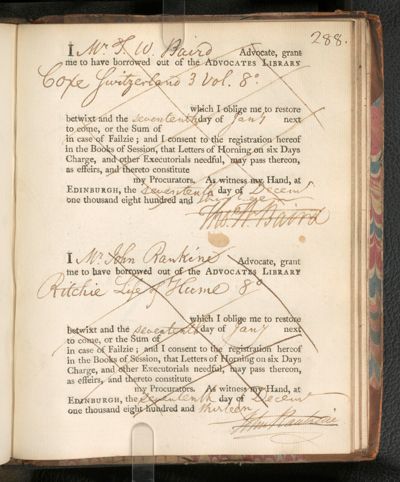 288.
I Mr T. W. Baird Advocate, grant
me to have borrowed out of the ADVOCATES LIBRARY
Coxe Switzerland 3 Vol. 8º
which I oblige me to restore
betwixt and the seventeenth day of Jany next
to come, or the Sum of
in case of Failzie; and I consent to the registration hereof
in the Books of Session, that Letters of Horning on six Days
Charge, and other Executorials needful, may pass thereon,
as effeirs, and thereto constitute
my Procurators. As witness my Hand, at
EDINBURGH, the seventeenth day of Decemr
one thousand eight hundred and thirteen
Thos. W. Baird
I Mr John Rankine Advocate, grant
me to have borrowed out of the ADVOCATES LIBRARY
Ritchie Life of Hume 8º
which I oblige me to restore
betwixt and the seventeenth day of Jany next
to come, or the Sum of
in case of Failzie; and I consent to the registration hereof
in the Books of Session, that Letters of Horning on six Days
Charge, and other Executorials needful, may pass thereon,
as effeirs, and thereto constitute
my Procurators. As witness my Hand, at
EDINBURGH, the seventeenth day of Decemr
one thousand eight hundred and thirteen
John Rankine